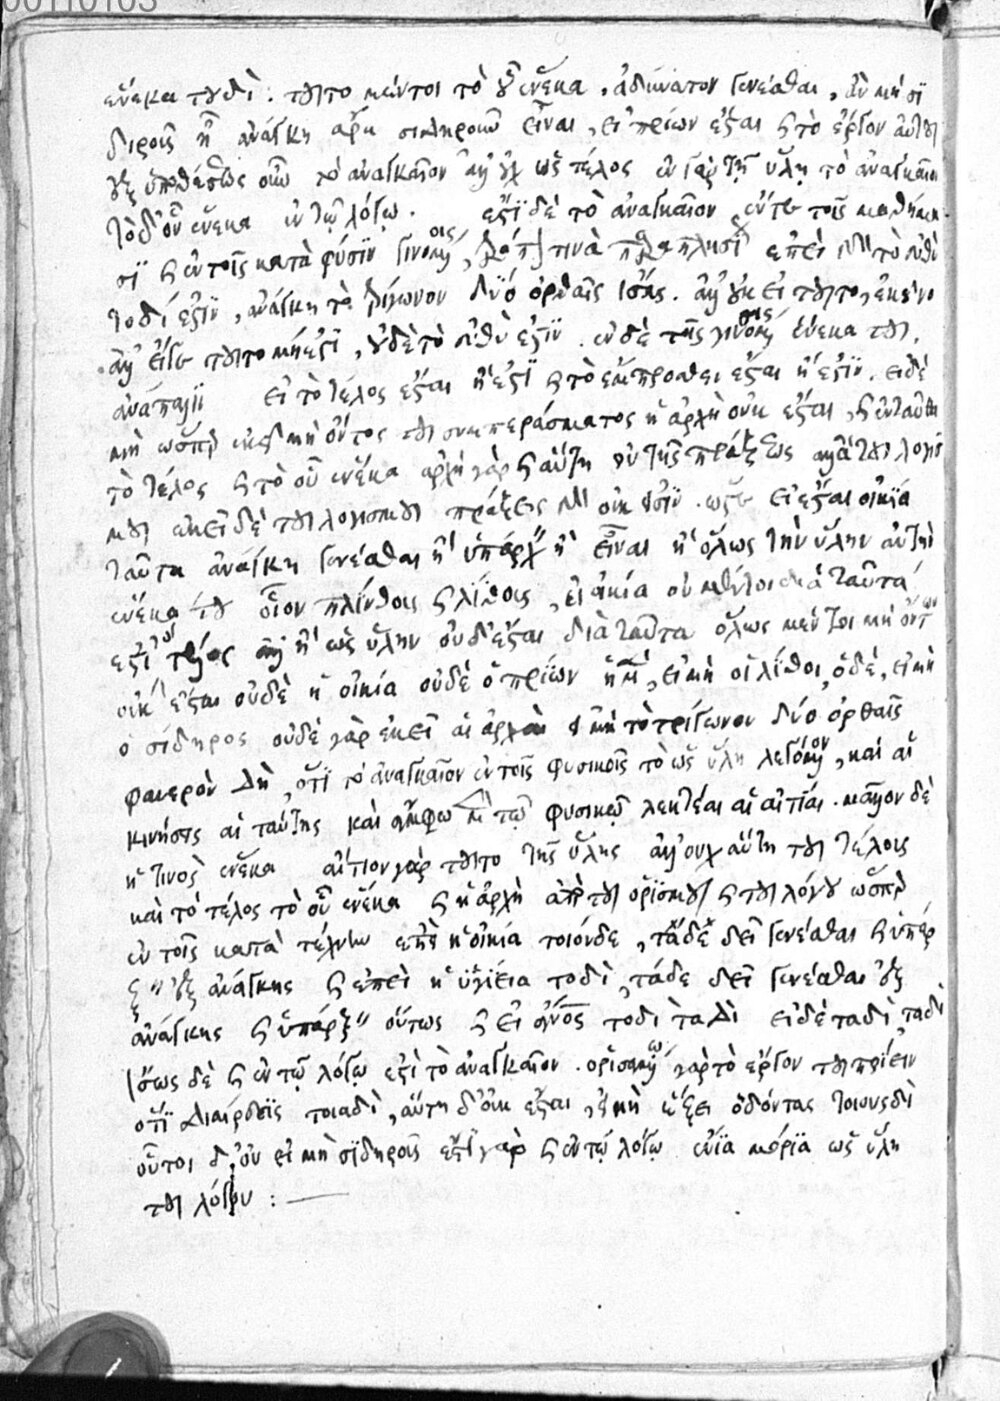 00110103
ἕνεκα τουδί. τοῦτο μέντοι τὸ οὗ ἕνεκα, ἀδύνατον γενέσθαι, ἂν μὴ σι
δηροῦς ᾖ ἀνάγκη ἄρα σιδηροῦν εἶναι, εἰ πρίων ἔσται καὶ τὸ ἔργον αὐτοῦ
ἐξ ὑποθέσεως οὖν τὸ ἀναγκαῖον ἀλλ' οὐχ ὡς τέλος ἐν γὰρ τῇ ὕλῃ τὸ ἀναγκαῖον
τὸ δ' οὗ ἕνεκα ἐν τῷ λόγῳ. ἔστι δὲ τὸ ἀναγκαῖον ἔν τε τοῖς μαθήμα
σι καὶ ἐν τοῖς κατὰ φύσιν γινομένοις, τρόπον τινὰ παραπλησί ἐπεὶ γὰρ τὸ εὐθὺ
τοδί ἐστιν, ἀνάγκη τὸ τρίγωνον δύο ὀρθαῖς ἴσας. ἀλλ' οὐκ εἰ τοῦτο, ἐκεῖνο
ἀλλ' εἴ γε τοῦτο μή ἐστι, οὐδὲ τὸ εὐθὺ ἐστιν. ἐν δὲ τοῖς γινομένοις ἕνεκα του,
ἀνάπαλιν εἰ τὸ τέλος ἔσται ἢ ἔστι καὶ τὸ ἔμπροσθεν ἔσται ἢ ἔστιν. εἰ δὲ
μὴ ὥσπερ ἐκεῖ μὴ ὄντος τοῦ συμπεράσματος ἡ ἀρχὴ οὐκ ἔσται, καὶ ἐνταῦθα
τὸ τέλος καὶ τὸ οὗ ἕνεκα ἀρχὴ γὰρ καὶ αὕτη οὐ τῆς πράξεως ἀλλὰ τοῦ λογισ
μοῦ ἐκεῖ δὲ τοῦ λογισμοῦ πράξεις γὰρ οὐκ εἰσίν. ὥστε εἰ ἔσται οἰκία
ταῦτα ἀνάγκη γενέσθαι ἢ ὑπάρχειν ἢ εἶναι ἢ ὅλως τὴν ὕλην αὐτὴν
ἕνεκα του οἷον πλίνθοις καὶ λίθοις, εἰ οἰκία οὐ μέντοι διὰ ταῦτα
ἐστὶ τὸ τέλος ἀλλ' ἢ ὡς ὕλην οὐδ' ἔσται διὰ ταῦτα ὅλως μέντοι μὴ ὄντων
οὐκ ἔσται οὐδὲ ἡ οἰκία οὐδὲ ὁ πρίων ἡ μὲν, εἰ μὴ οἱ λίθοι, ὁ δὲ, εἰ μὴ
ὁ σίδηρος οὐδὲ γὰρ ἐκεῖ αἱ ἀρχαὶ εἰ μὴ τὸ τρίγωνον δύο ὀρθαῖς
φανερὸν δὴ, ὅτι τὸ ἀναγκαῖον ἐν τοῖς φυσικοῖς τὸ ὡς ὕλη λεγόμενον, καὶ αἱ
κινήσεις αἱ ταύτης καὶ ἄμφω μὲν τῷ φυσικῷ λεκτέαι αἱ αἰτίαι. μᾶλλον δὲ
ἡ τινὸς ἕνεκα αἴτιον γὰρ τοῦτο τῆς ὕλης ἀλλ' οὐχ αὕτη τοῦ τέλους
καὶ τὸ τέλος τὸ οὗ ἕνεκα καὶ ἡ ἀρχὴ ἀπὸ τοῦ ὁρισμοῦ καὶ τοῦ λόγου ὥσπερ
ἐν τοῖς κατὰ τέχνην ἐπεὶ ἡ οἰκία τοιόνδε, τάδε δεῖ γενέσθαι καὶ ὑπάρ
ξειν ἐξ ἀνάγκης καὶ ἐπεὶ ἡ ὑγίεια τοδὶ, τάδε δεῖ γενέσθαι ἐξ
ἀνάγκης καὶ ὑπάρξειν οὕτως καὶ εἰ ἄνθρωπος τοδὶ ταδὶ εἰ δὲ ταδὶ, ταδὶ
ἴσως δὲ καὶ ἐν τῷ λόγῳ ἐστὶ τὸ ἀναγκαῖον. ὁρισαμένῳ γὰρ τὸ ἔργον τοῦ πρίειν
ὅτι διαίρεσις τοιαδὶ, αὕτη δ' οὐκ ἔσται, εἰ μὴ ἕξει ὀδόντας τοιουσδὶ
οὗτοι δ' οὐ εἰ μὴ σιδηροῦς ἔστι γὰρ καὶ ἐν τῷ λόγῳ ἔνια μόρια ὡς ὕλη
τοῦ λόγου :—